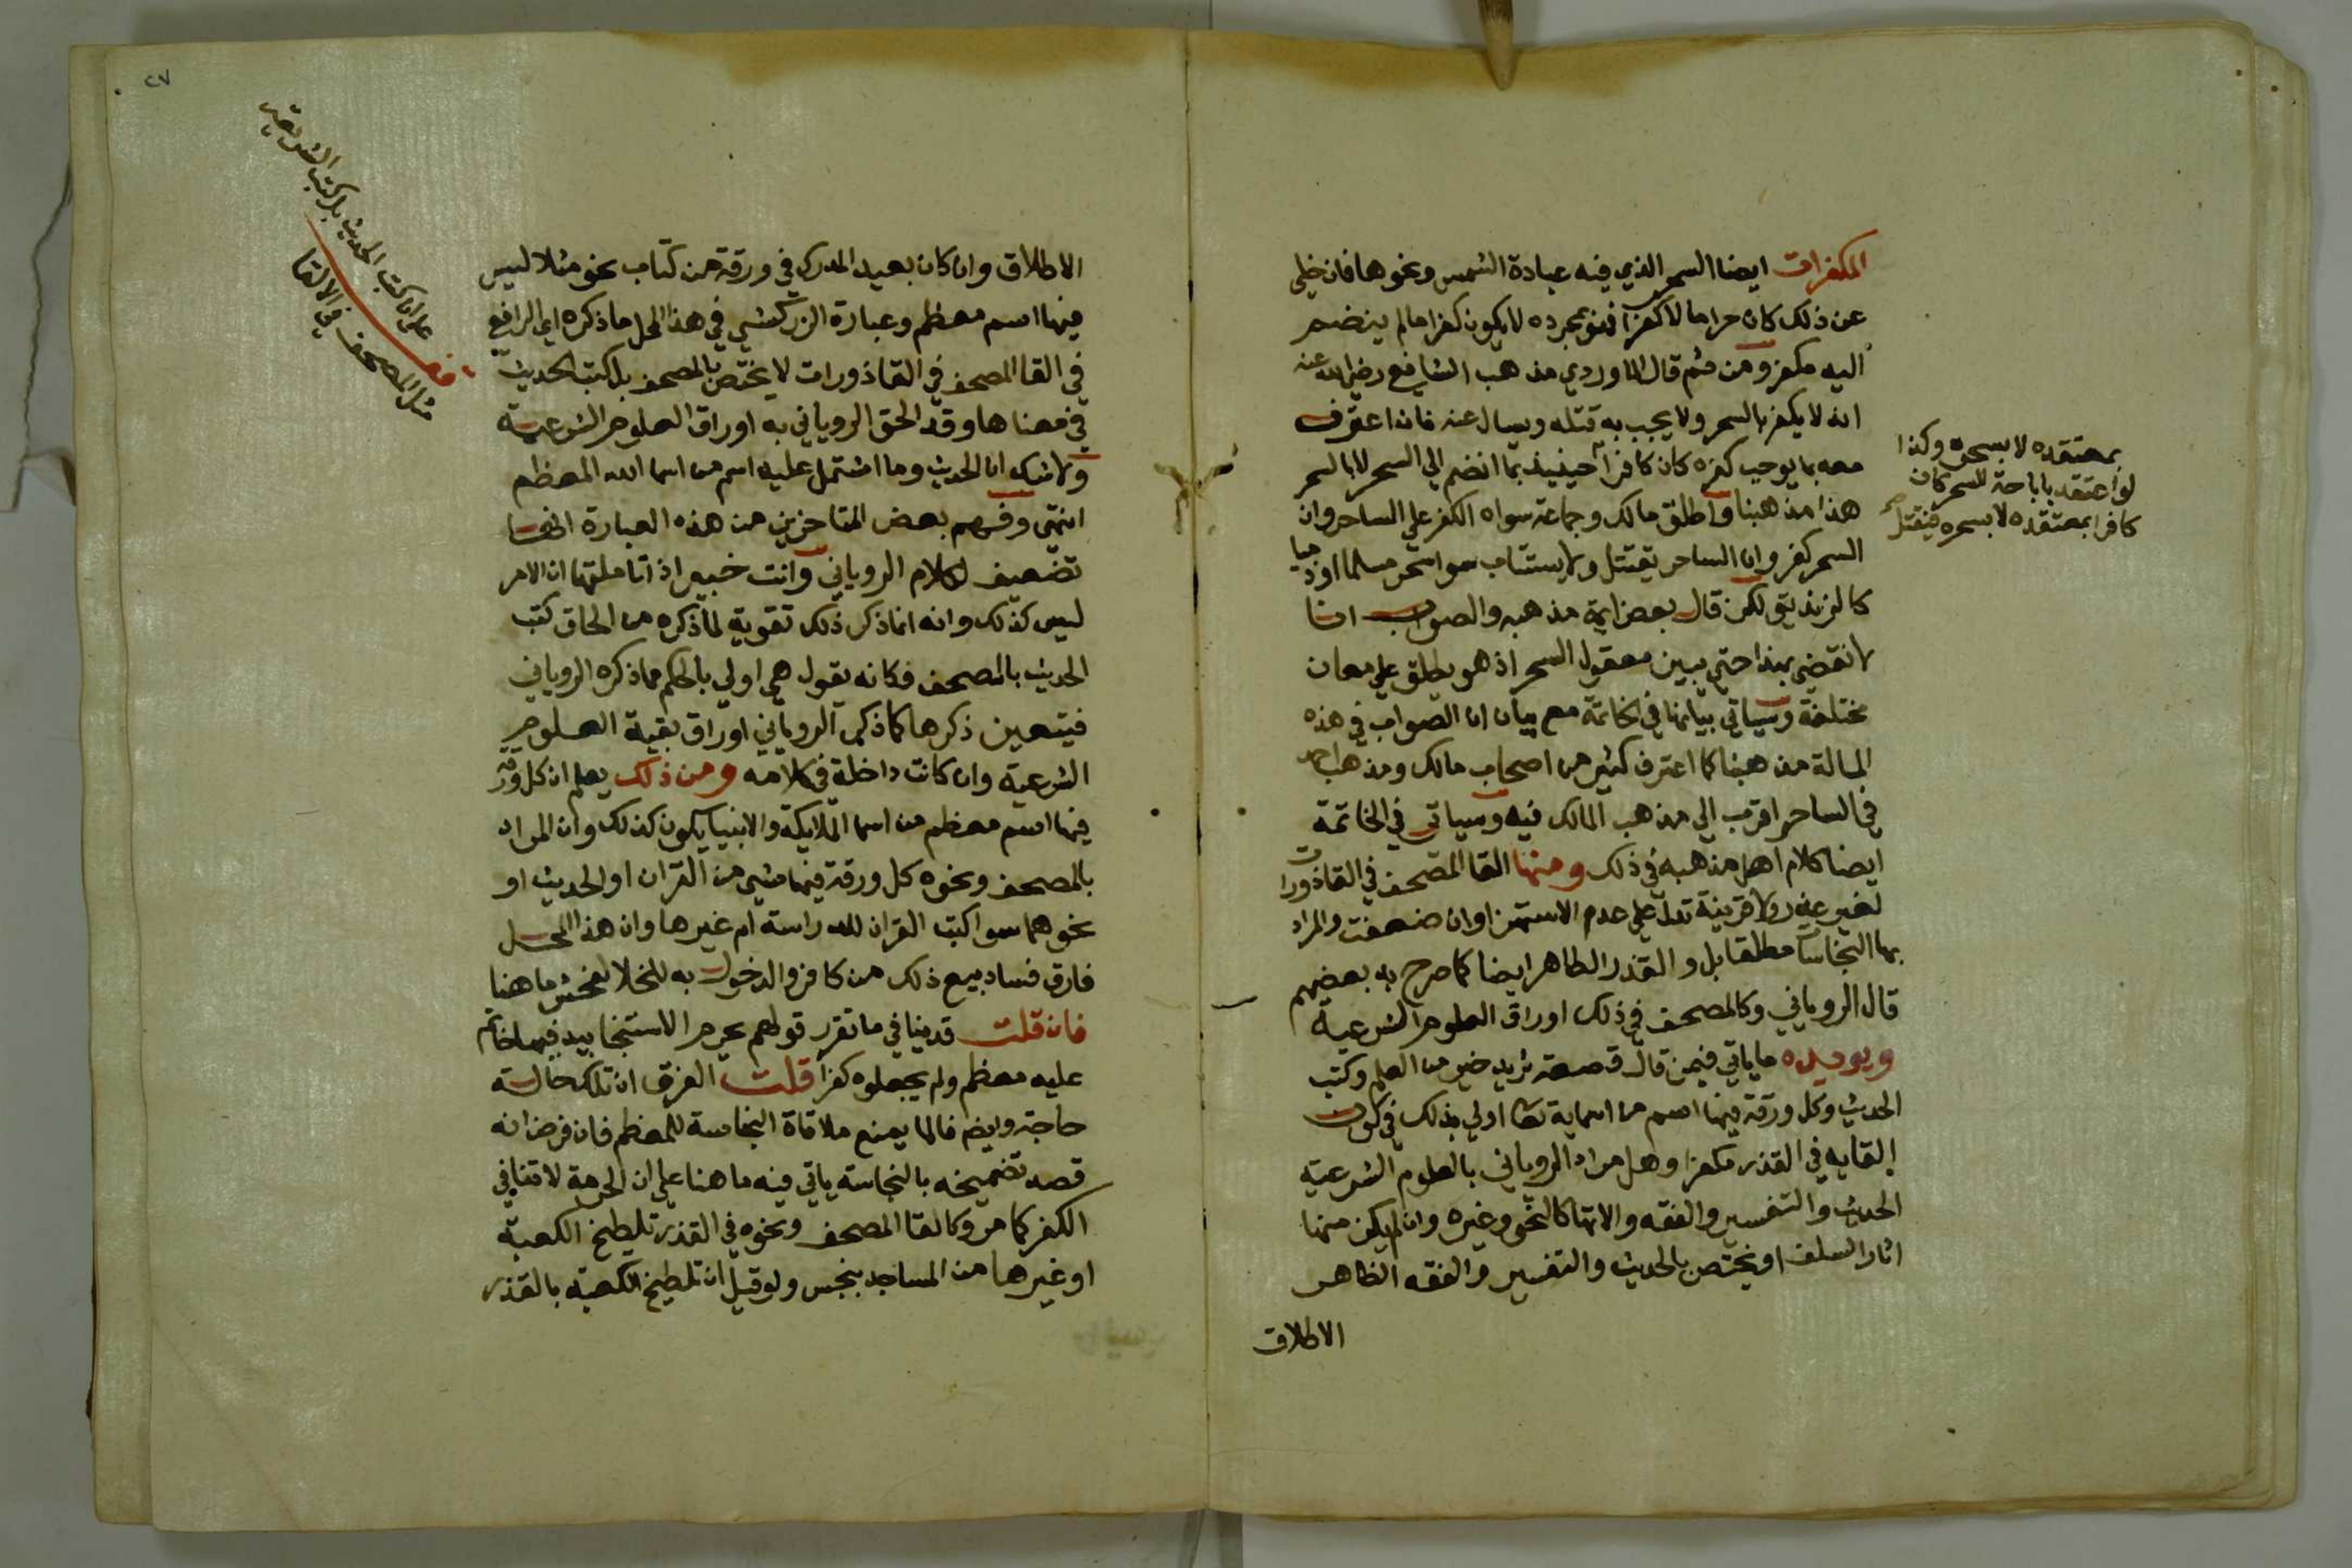 المكفرات ايضا السحر الذي فيه عبادة الشمس ونحوها فان خلى
عن ذلك كان حراما لا كفرا فهو بمجرده لا يكون كفرا ما لم ينضم
اليه مكفر ومن ثم قال الماوردي مذهب الشافعي رضي الله عنه
انه لا يكفر بالسحر ولا يجب به قتله ويسال عنه فان اعترف
معه بما يوجب كفره كان كافرا حينيذ بما انضم الي السحر لا بالسحر
هذا مذهبنا واطلق مالك وجماعة سواه الكفر علي الساحر وان
السحر كفر وان الساحر يقتل ولا يستتاب سوا سحر مسلما او ذميا
كالزنديق لكن قال بعض ايمة مذهبه والصواب انا
لا نقضي بهذا حتي يبين معقول السحر اذ هو يطلق علي معان
مختلفة وسياتي بيانها في الخاتمة مع بيان ان الصواب في هذه
المسالة مذهبنا كما اعترف كثير من اصحاب مالك ومذهب احمد
في الساحر اقرب الي مذهب المالك فيه وسياتي في الخاتمة
ايضا كلام اهل مذهبه في ذلك ومنها القا المصحف في القاذورات
لغير عذر ولا قرينة تدل علي عدم الاستهزا وان ضعفت والمراد
بها النجاسات مطلقا بل والقذر الطاهر ايضا كما صرح به بعضهم
قال الروياني وكالمصحف في ذلك اوراق العلوم الشرعية
ويويده ما ياتي فيمن قال قصعة ثريد خير من العلم وكتب
الحديث وكل ورقة فيها اسم من اسمايه تعا اولي بذلك في كون
القايه في القذر مكفرا وهل مراد الروياني بالعلوم الشرعية
الحديث والتفسير والفقه والاتها كالنحو وغيره وان لم يكن منها
اثار السلف او يختص بالحديث والتفسير والفقه الظاهر
الاطلاق
بمعتقده لا بسحره وكذا
لو اعتقد باباحة السحر كان
كافرا بمعتقده لا بسحره فيقتل
٢٧
الاطلاق وان كان بعيد المدرك في ورقة من كتاب نحو مثلا ليس
فيها اسم معظم وعبارة الزركشي في هذا المحل ما ذكره اي الرافعي
في القا المصحف في القاذورات لا يختص بالمصحف بل كتب الحديث
في معناها وقد الحق الروياني به اوراق العلوم الشرعية
ولا شك ان الحديث وما اشتمل عليه اسم من اسما الله المعظم
انتهي وفهم بعض المتاخرين من هذه العبارة انها
تضعيف لكلام الروياني وانت خبير اذا تاملتها ان الامر
ليس كذلك وانه انما ذكر ذلك تقوية لما ذكره من الحاق كتب
الحديث بالمصحف فكانه يقول هي اولي بالحكم مما ذكره الروياني
فيتعين ذكرها كما ذكر الروياني اوراق بقية العلوم
الشرعية وان كانت داخلة في كلامه ومن ذلك يعلم ان كل ورقة
فيها اسم معظم من اسما الملايكة والانبيا يكون كذلك وان المراد
بالمصحف ونحوه كل ورقة فيها شي من القران او الحديث او
نحوهما سوا كتب القران للدراسة ام غيرها وان هذا المحل
فارق فساد بيع ذلك من كافر والدخول به للخلا لفحش ما هنا
فان قلت قد ينافي ما تقرر قولهم يحرم الاستنجا بيد فيها خاتم
عليه معظم ولم يجعلوه كفرا قلت الفرق ان تلك حالة
حاجة وايضا فالما يمنع ملاقاة النجاسة للمعظم فان فرض انه
قصد تضميخه بالنجاسة ياتي فيه ما هنا علي ان الحرمة لا تنافي
الكفر كما مر وكالقا المصحف ونحوه في القذر تلطيخ الكعبة
او غيرها من المساجد بنجس ولو قيل ان تلطيخ الكعبة بالقذر
كتب الحديث بل كتب الشرعية
مثل المصحف في الالقا